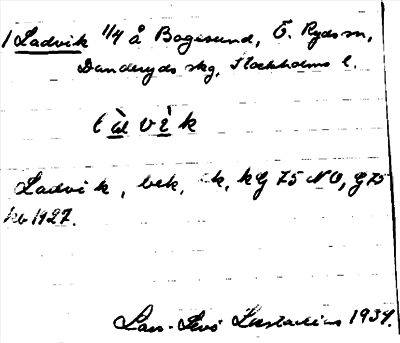 1 Ladvik 1/4 å Bogesund, Ö. Ryds sn,
Danderyds skg, Stockholms l.
l à d v ì k
Ladvik, bek, k, kG 75 NO, G 75
kb 1927.
Lars-Levi Læstadius 1934.